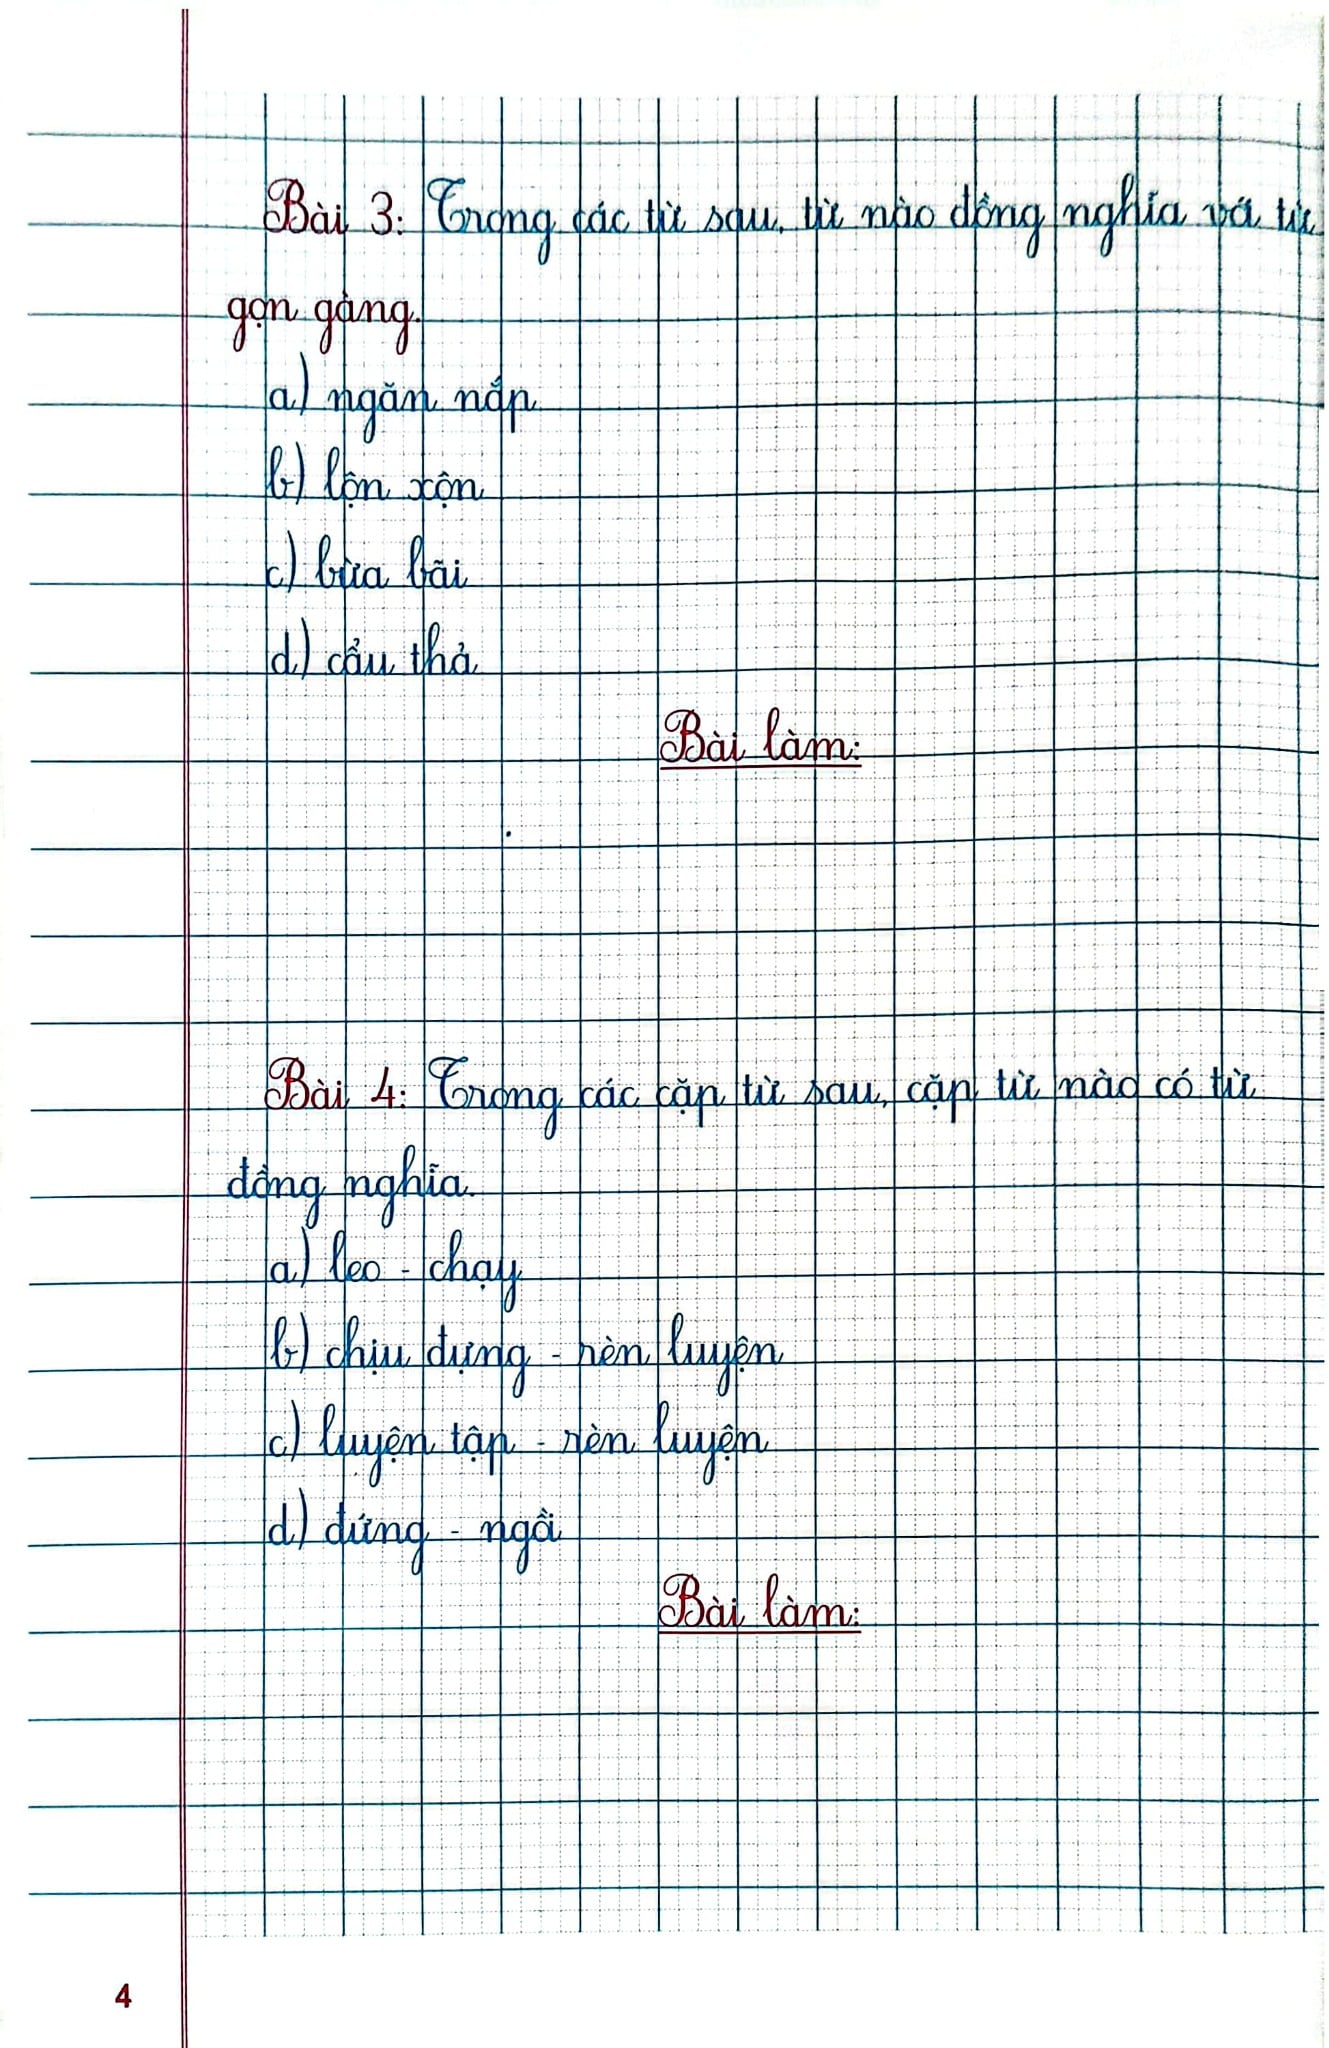 Bài 3: Trong các từ sau, từ nào đồng nghĩa với từ
gọn gàng.
a) ngăn nắp
b) lộn xộn
c) bừa bãi
d) cẩu thả
Bài làm:
Bài 4: Trong các cặp từ sau, cặp từ nào có từ
đồng nghĩa.
a) leo - chạy
b) chịu đựng - rèn luyện
c) luyện tập - rèn luyện
d) đứng - ngồi
Bài làm:
4